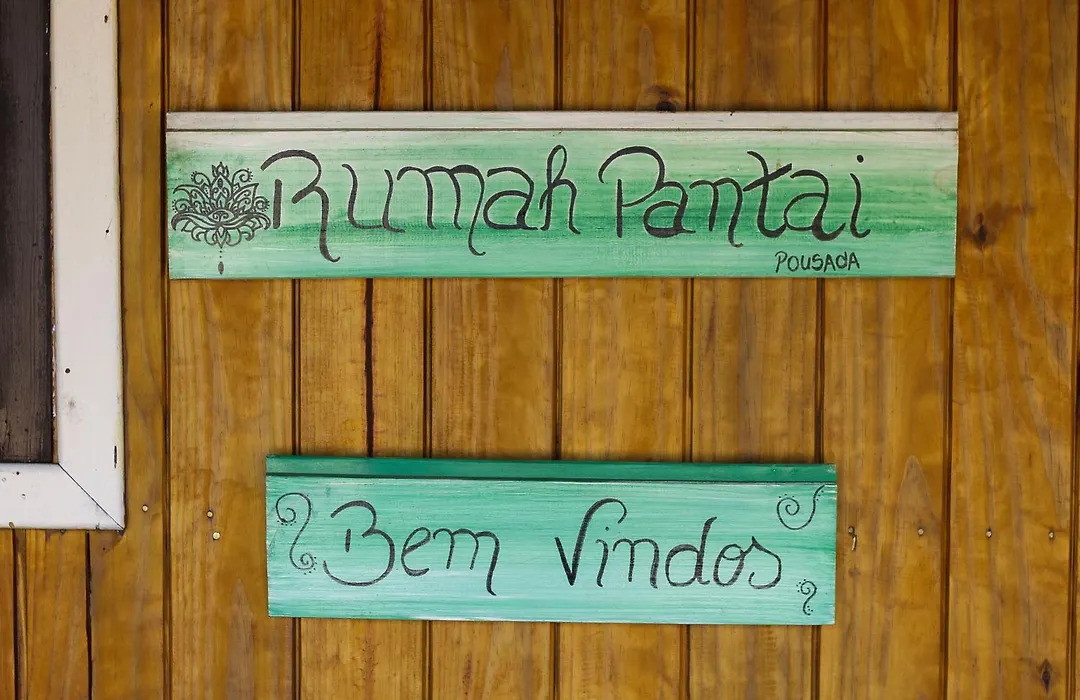 Rumah Pantai
POUSADA
Bem Vindos